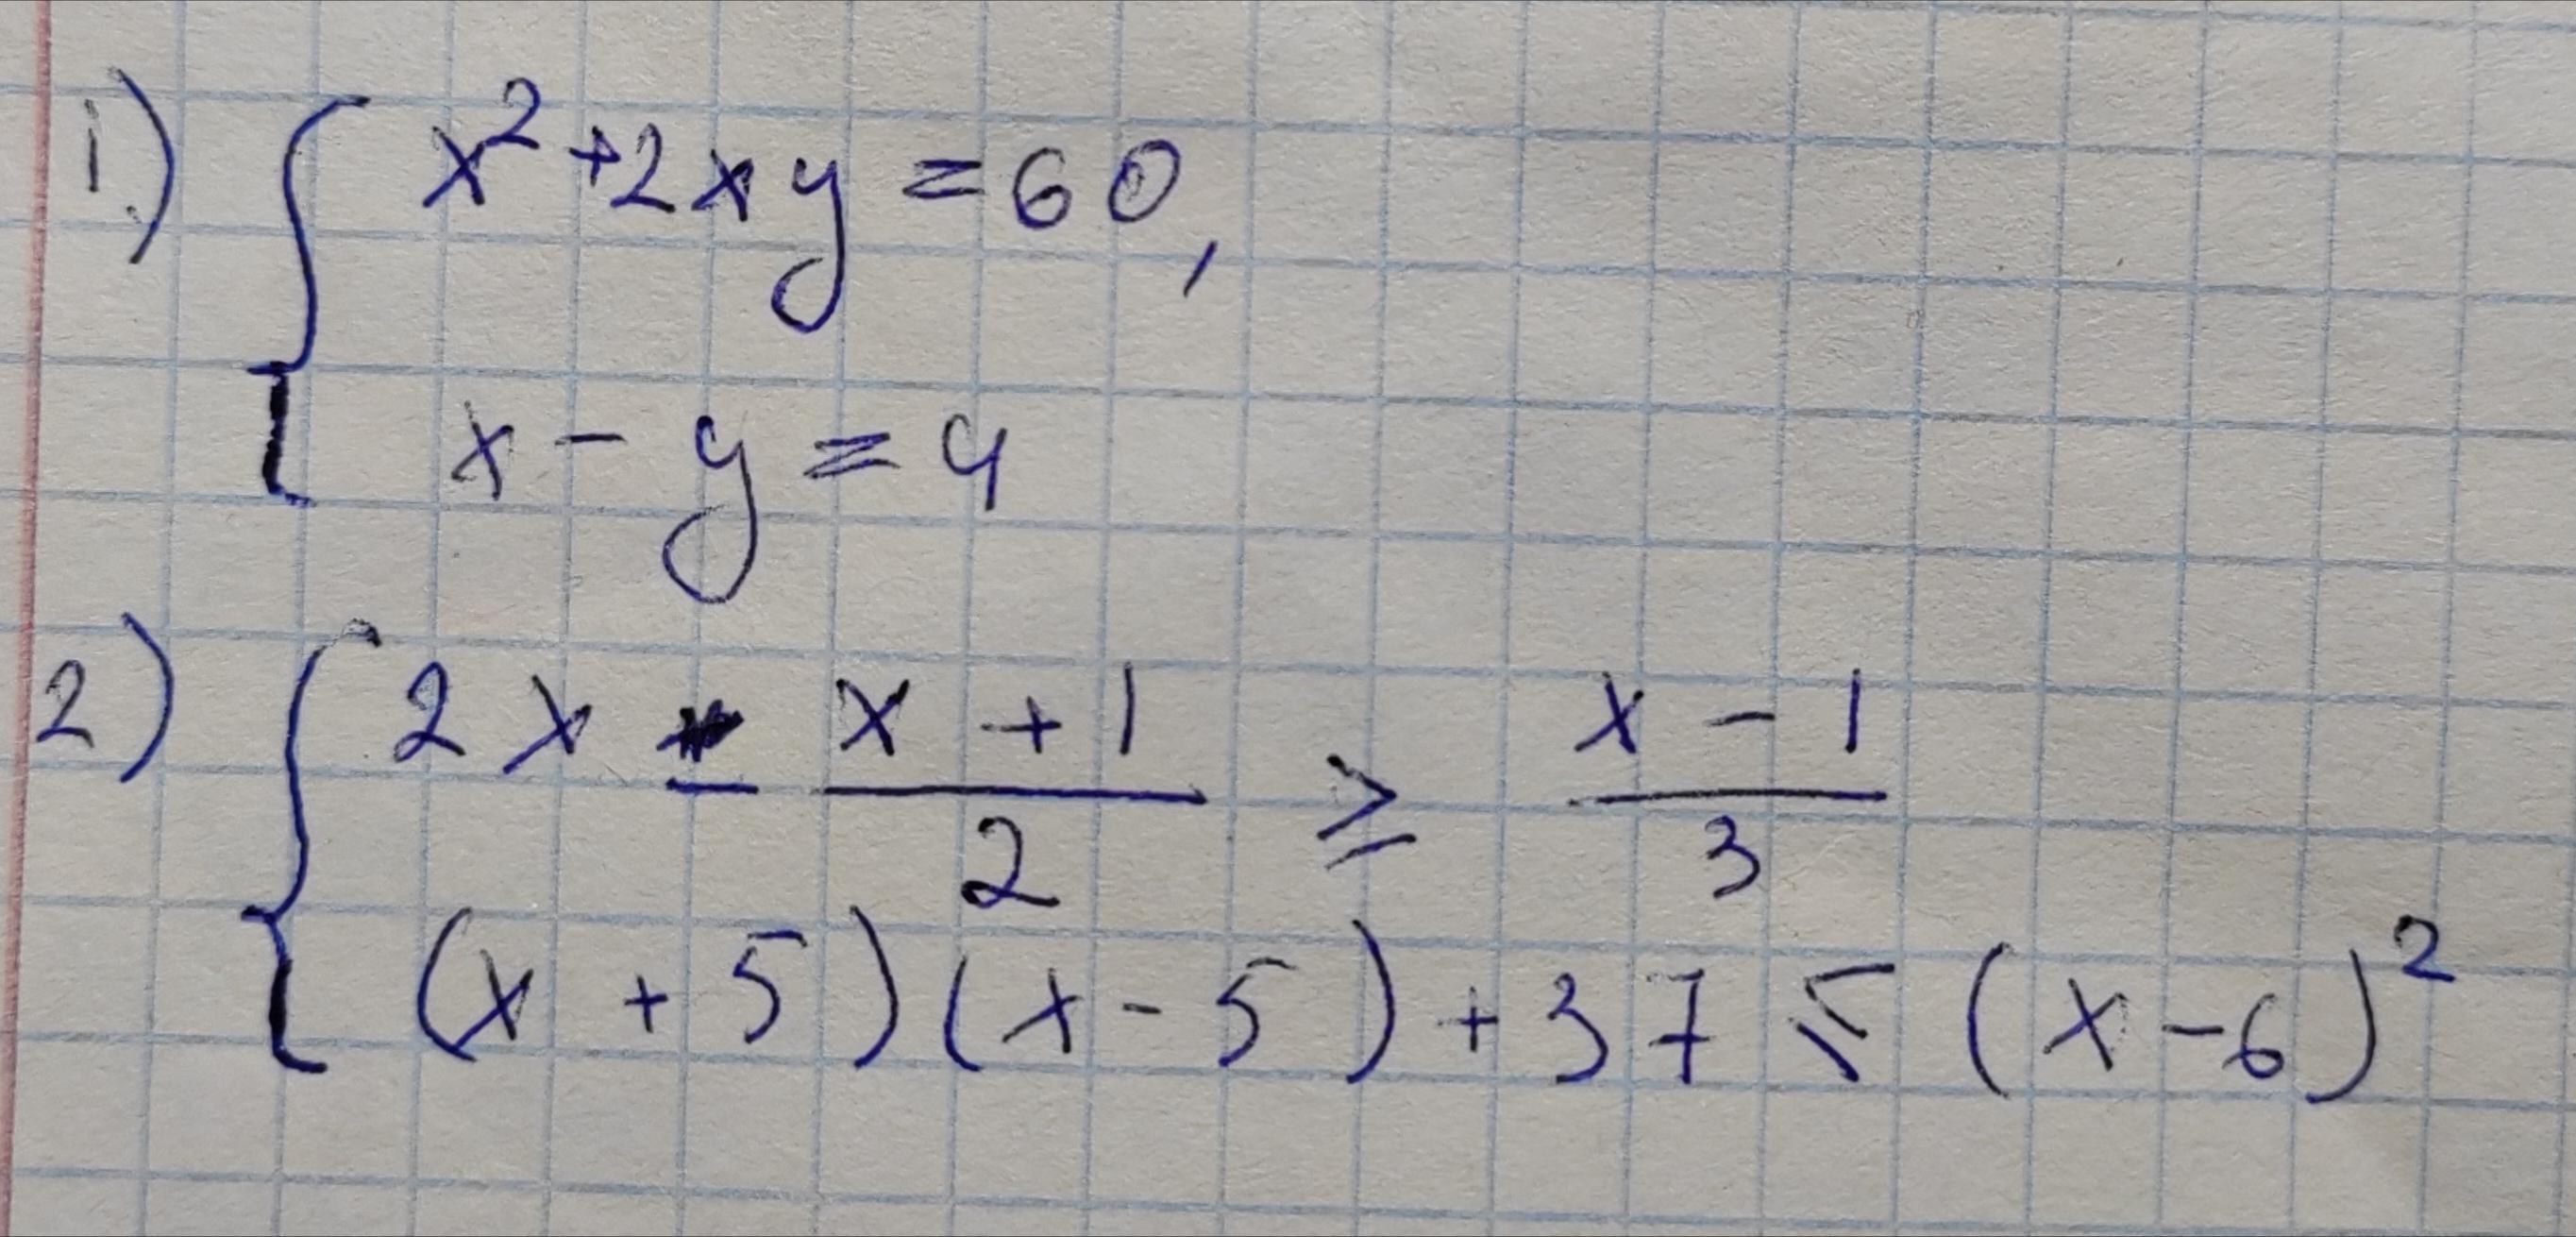 1) { x² + 2xy = 60,
x - y = 4
2) { 2x - (x + 1)/2 ≥ (x - 1)/3
(x + 5)(x - 5) + 37 ≤ (x - 6)²